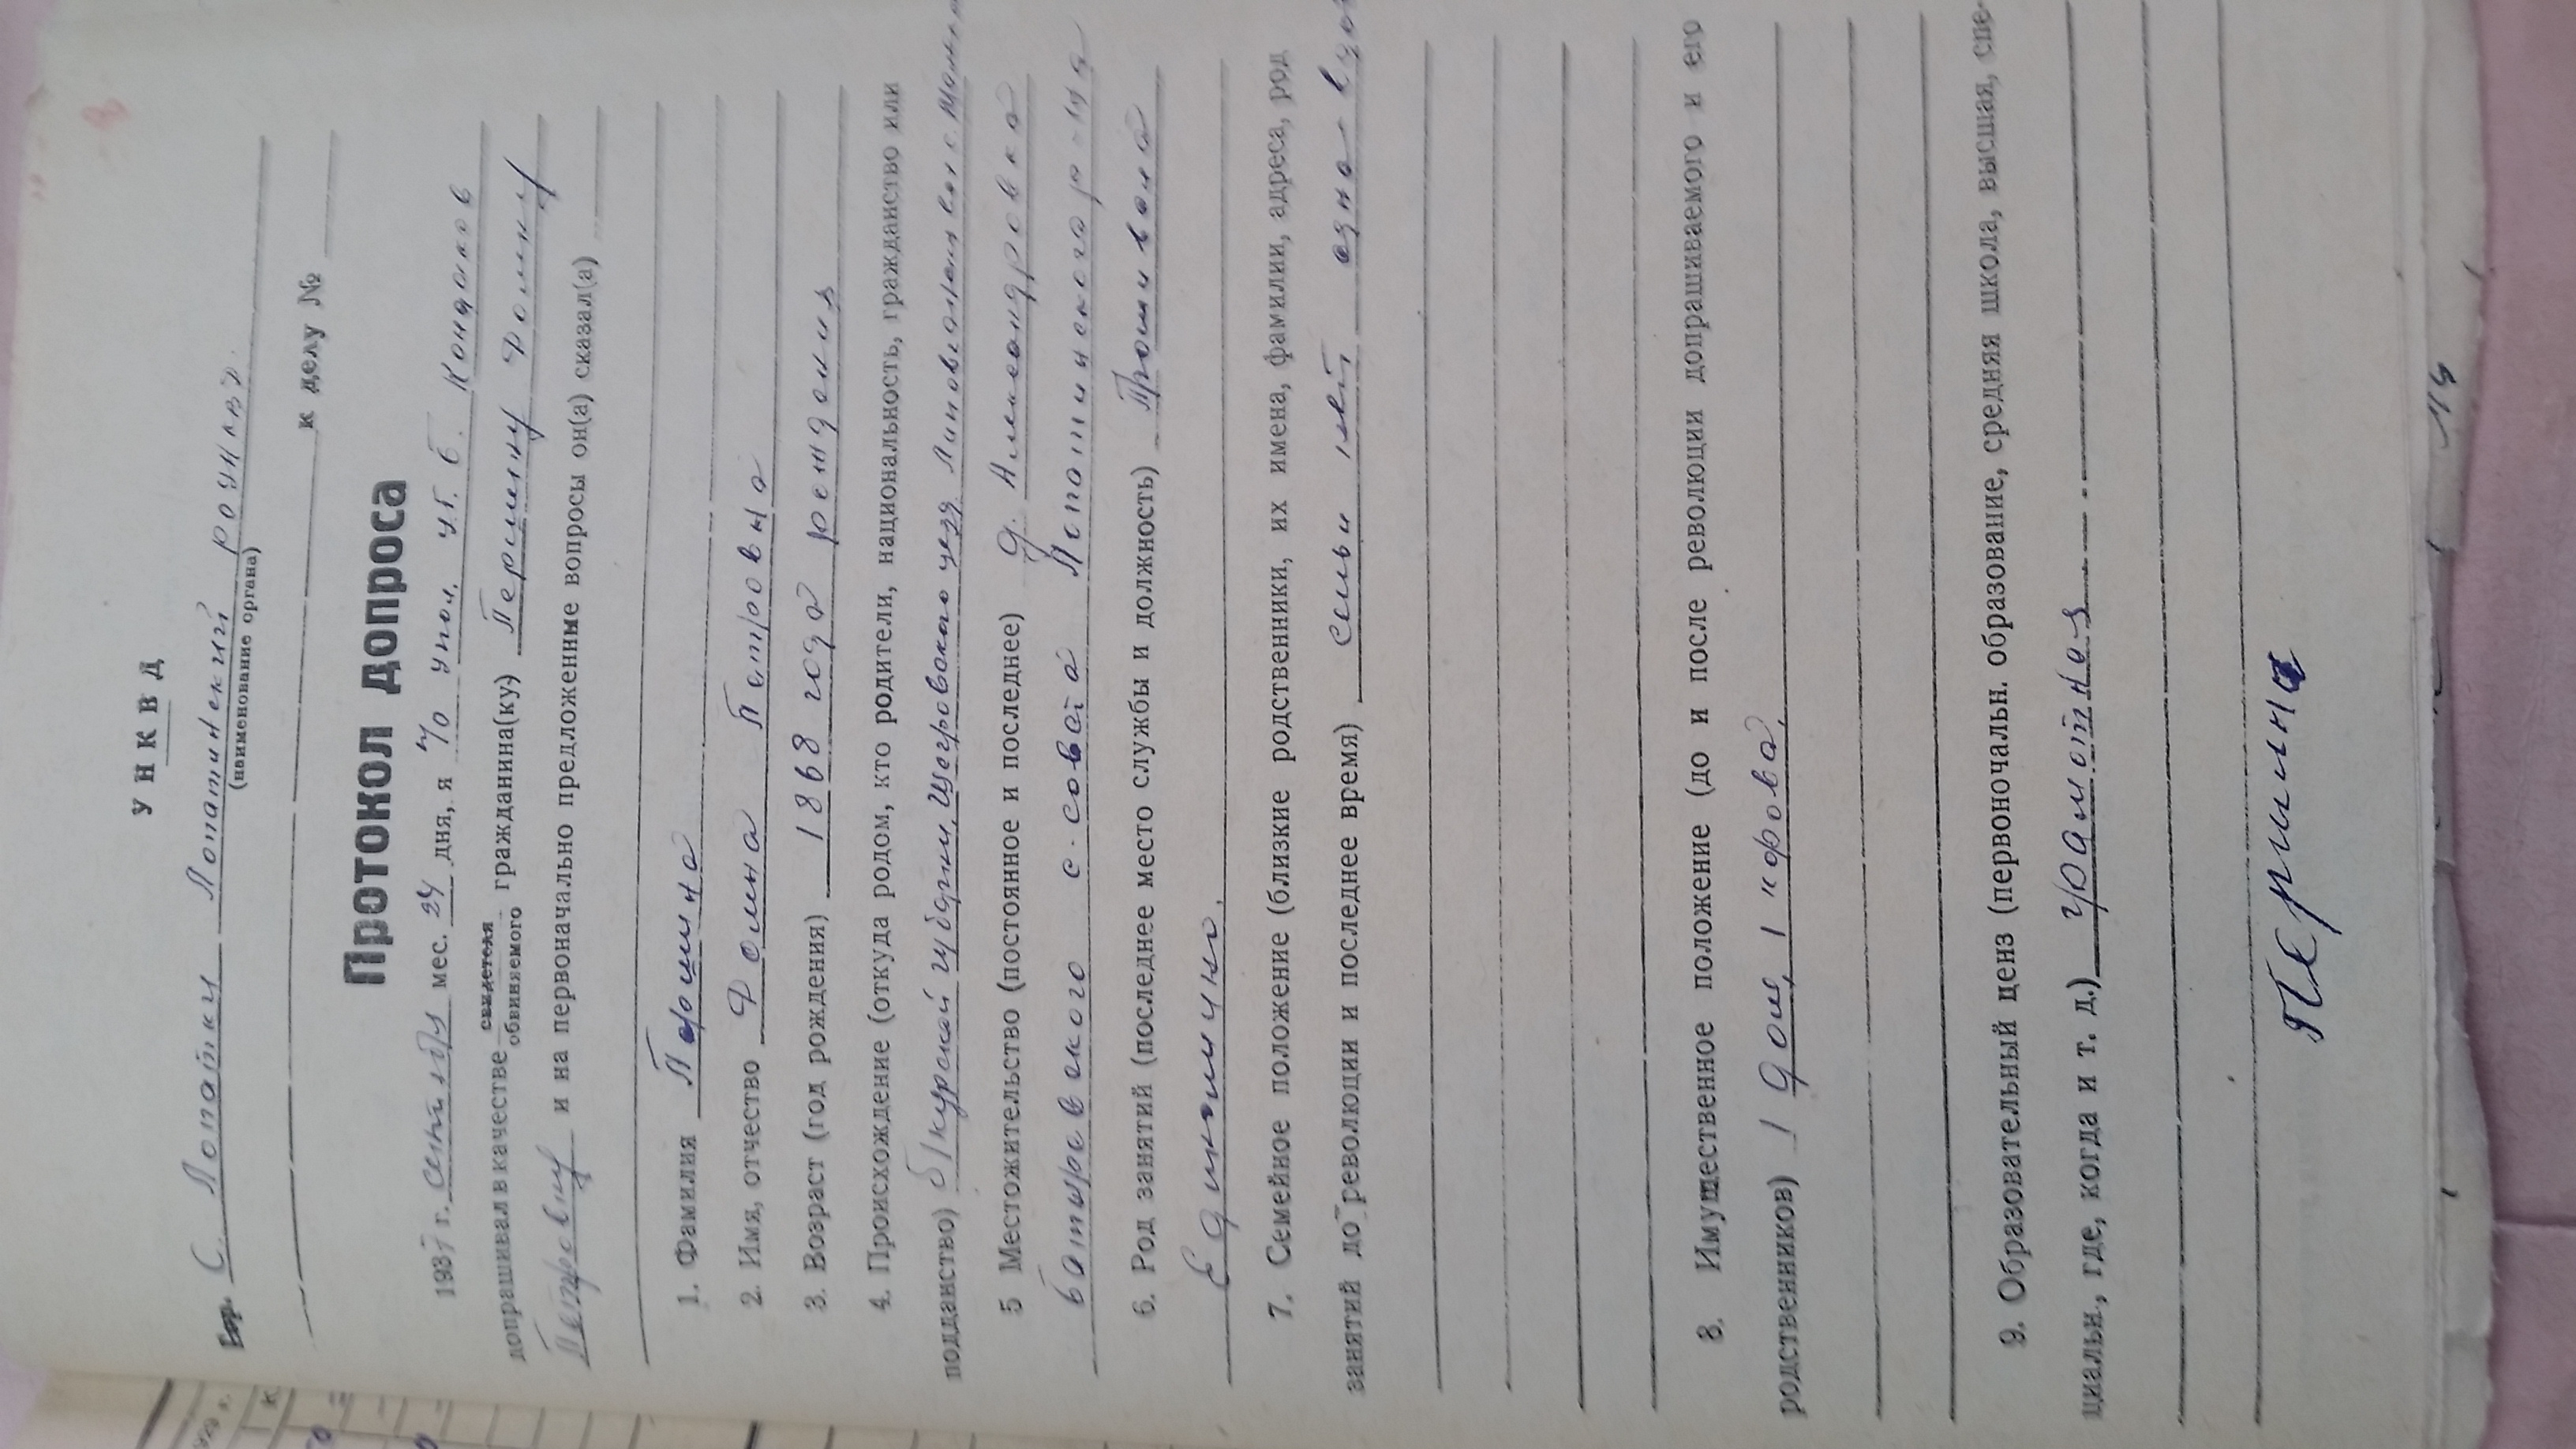 УНКВД
Гор. С. Лопатки Лопатинский роунквд.
(наименование органа)
к делу №
Протокол допроса
1937 г. сентября мес. 24 дня, я п/о упол. уг. б. Кондаков
допрашивал в качестве свидетеля обвиняемого гражданина(ку) Першину Домну
Петровну и на первоначально предложенные вопросы он(а) сказал(а)
1. Фамилия Першина
2. Имя, отчество Домна Петровна
3. Возраст (год рождения) 1868 года рождения
4. Происхождение (откуда родом, кто родители, национальность, гражданство или
подданство) б/курской губернии, Щегровского уезд
5 Местожительство (постоянное и последнее) д. Александровка
с. совета Лопатинского р-на
6. Род занятий (последнее место службы и должность)
Единолично.
7. Семейное положение (близкие родственники, их имена, фамилии, адреса, род
занятий до революции и последнее время) семьи нет одна
8. Имущественное положение (до и после революции допрашиваемого и его
родственников) 1 дом, 1 корова,
9. Образовательный ценз (первоночальн. образование, средняя школа, высшая, спе-
циальн., где, когда и т. д.) грамотная
Першина